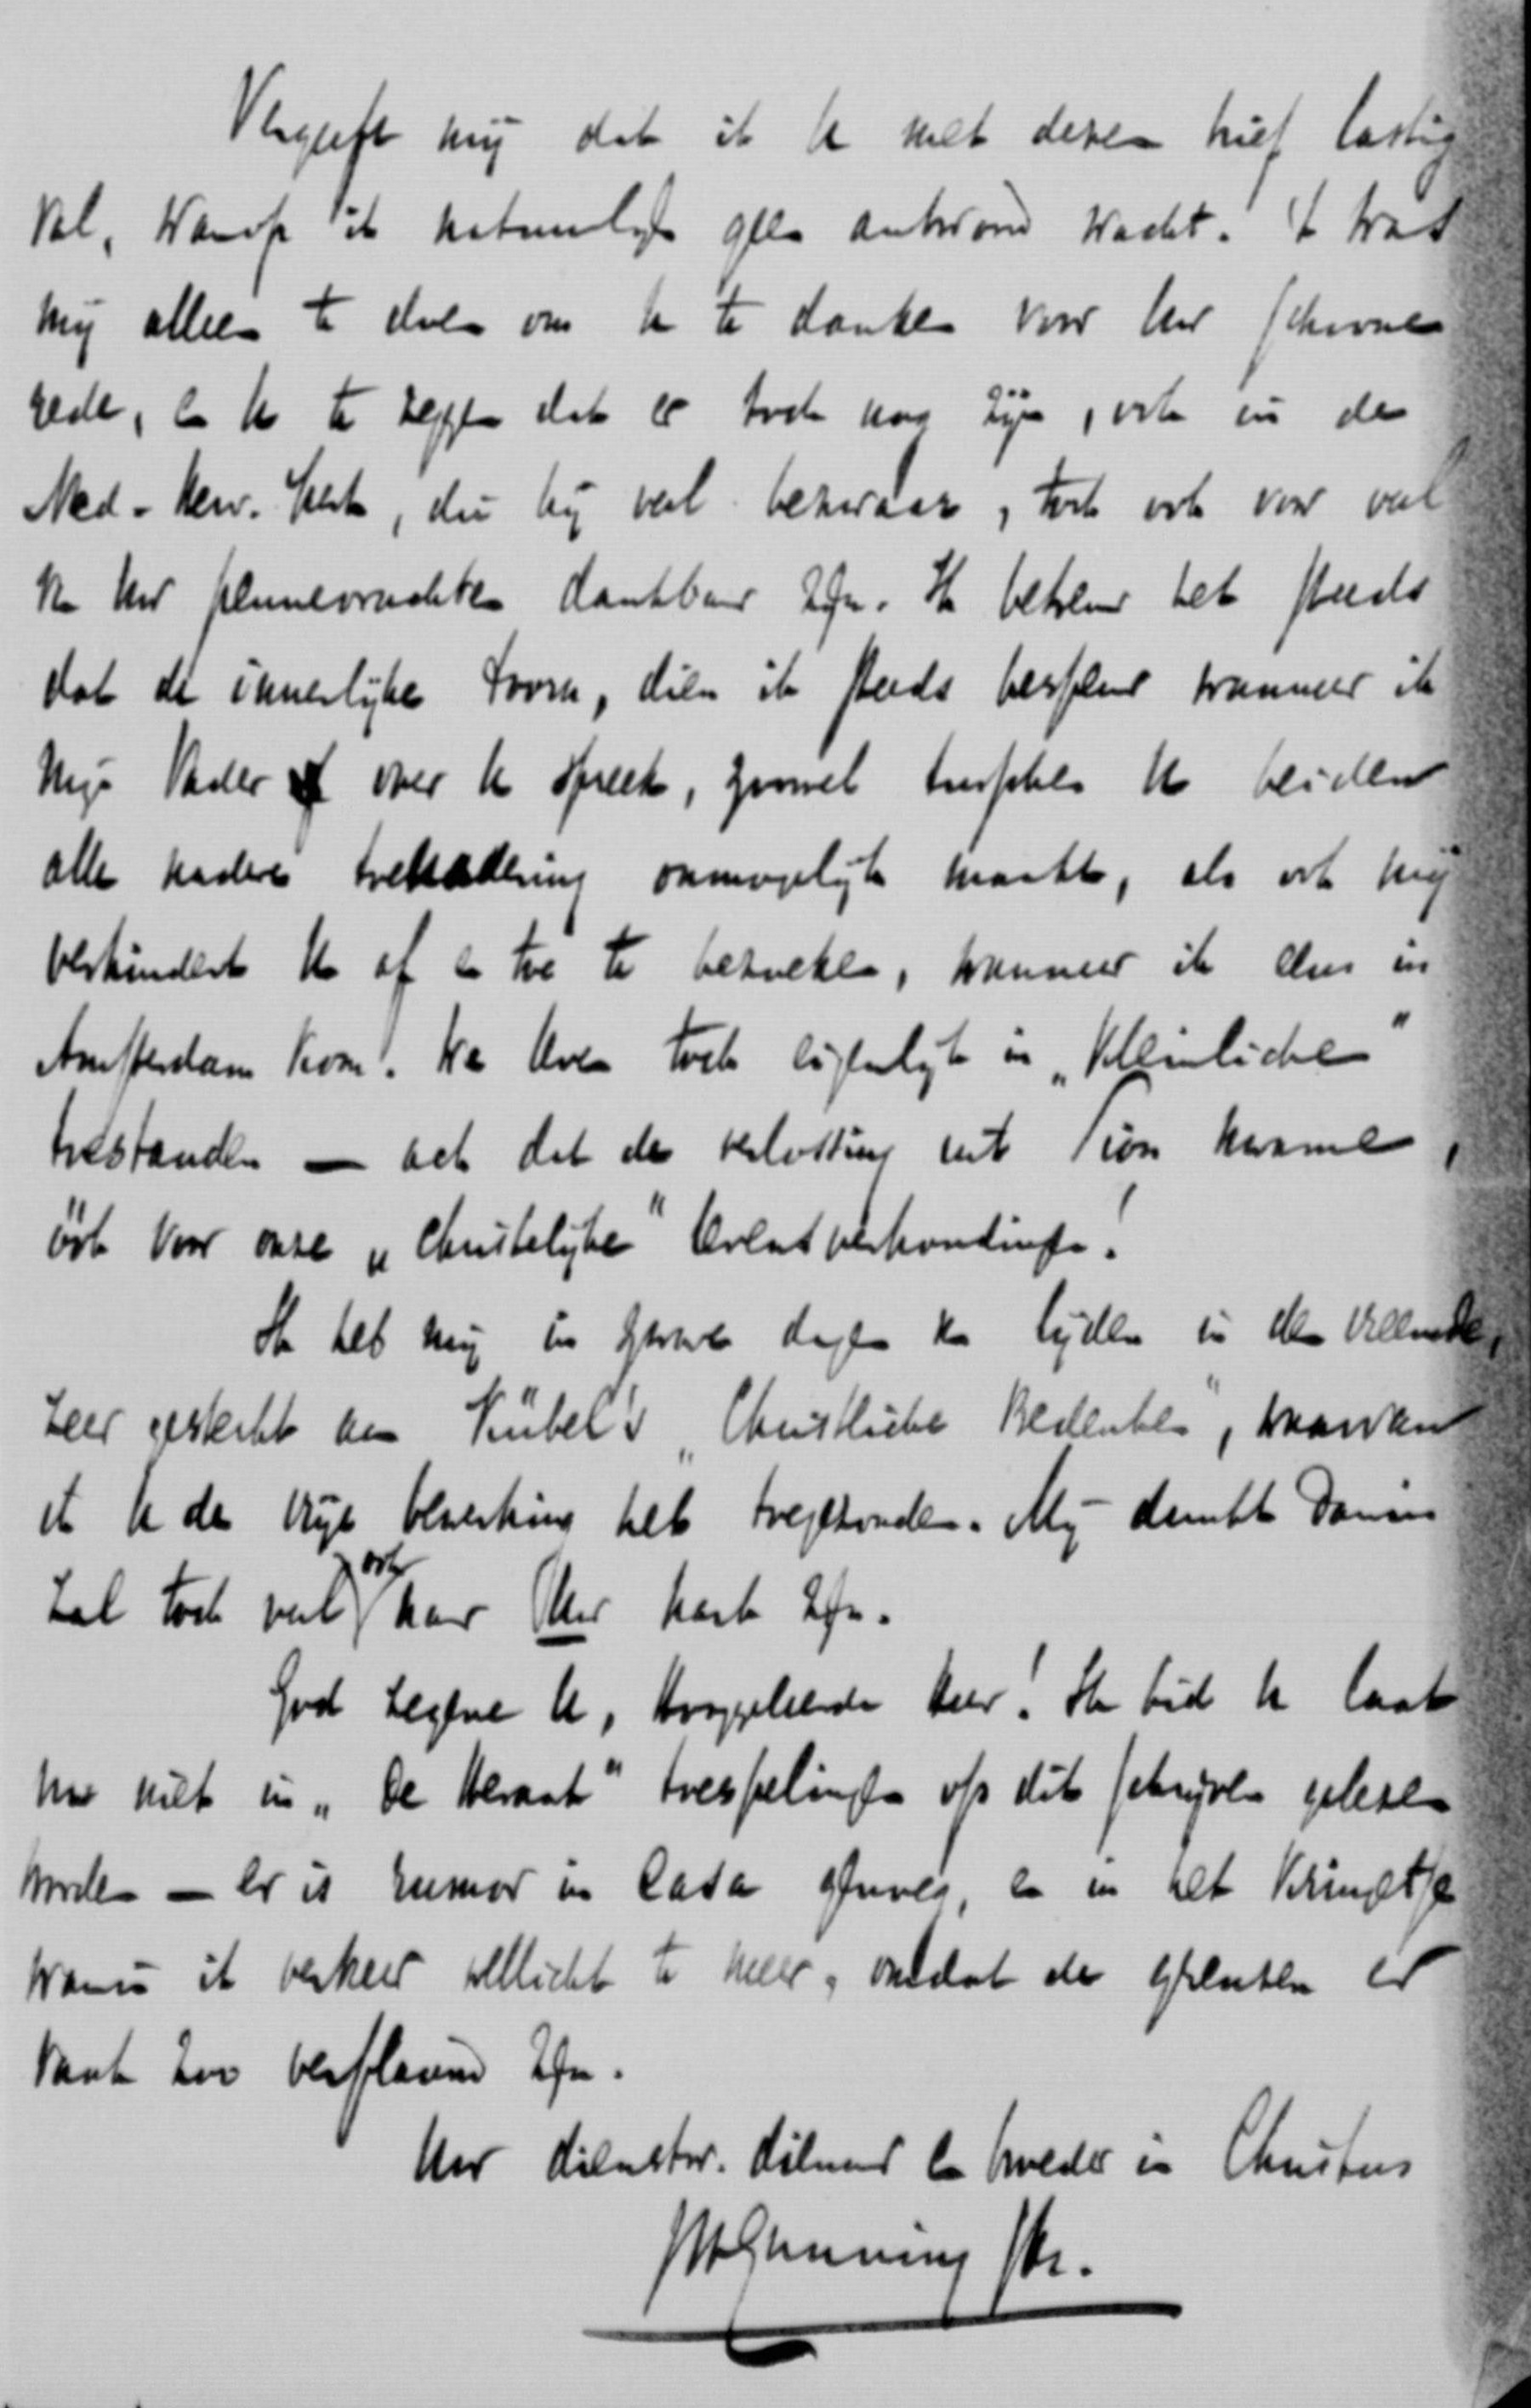 Vergeeft mij dat ik U met dezen brief lastig
val, waarop ik natuurlijk geen antwoord wacht. 't was
mij alleen te doen om U te danken voor Uw schoone
rede, en U te zeggen dat er toch nog zijn, ook in de
Ned-Herv. Kerk, die bij veel bezwaar, toch ook voor veel
in Uw pennevruchten dankbaar zijn. Ik betreur het steeds
dat de innerlijke toorn, dien ik steeds bespeur wanneer ik
mijn Vader over U spreek, zoowel tusschen U beiden
alle nadere toenadering onmogelijk maakt, als ook mij
verhindert U af en toe te bezoeken, wanneer ik eens in
Amsterdam kom. We leven toch eigenlijk in „kleinliche"
toestanden — ach dat de verlossing uit Sion kwame,
óók voor onze „christelijke" levensverhoudingen!
Ik heb mij in zware dagen van lijden in den vreemde,
zeer gesterkt aan Kübel's „Christliche Bedenken", waarvan
ik U de vrije bewerking heb toegezonden. Mij dunkt daarin
zal toch veel ook naar Uw hart zijn.
God zegene U, Hooggeleerde Heer! Ik bid U laat
me niet in „De Heraut" toespelingen op dit schrijven gelezen
worden — er is rumor in casa genoeg, en in het kringetje
waarin ik verkeer wellicht te meer, omdat de grenzen er
vaak zoo verflauwd zijn.
Uw dienstw. dienaar en broeder in Christus
JHGunning JHz.